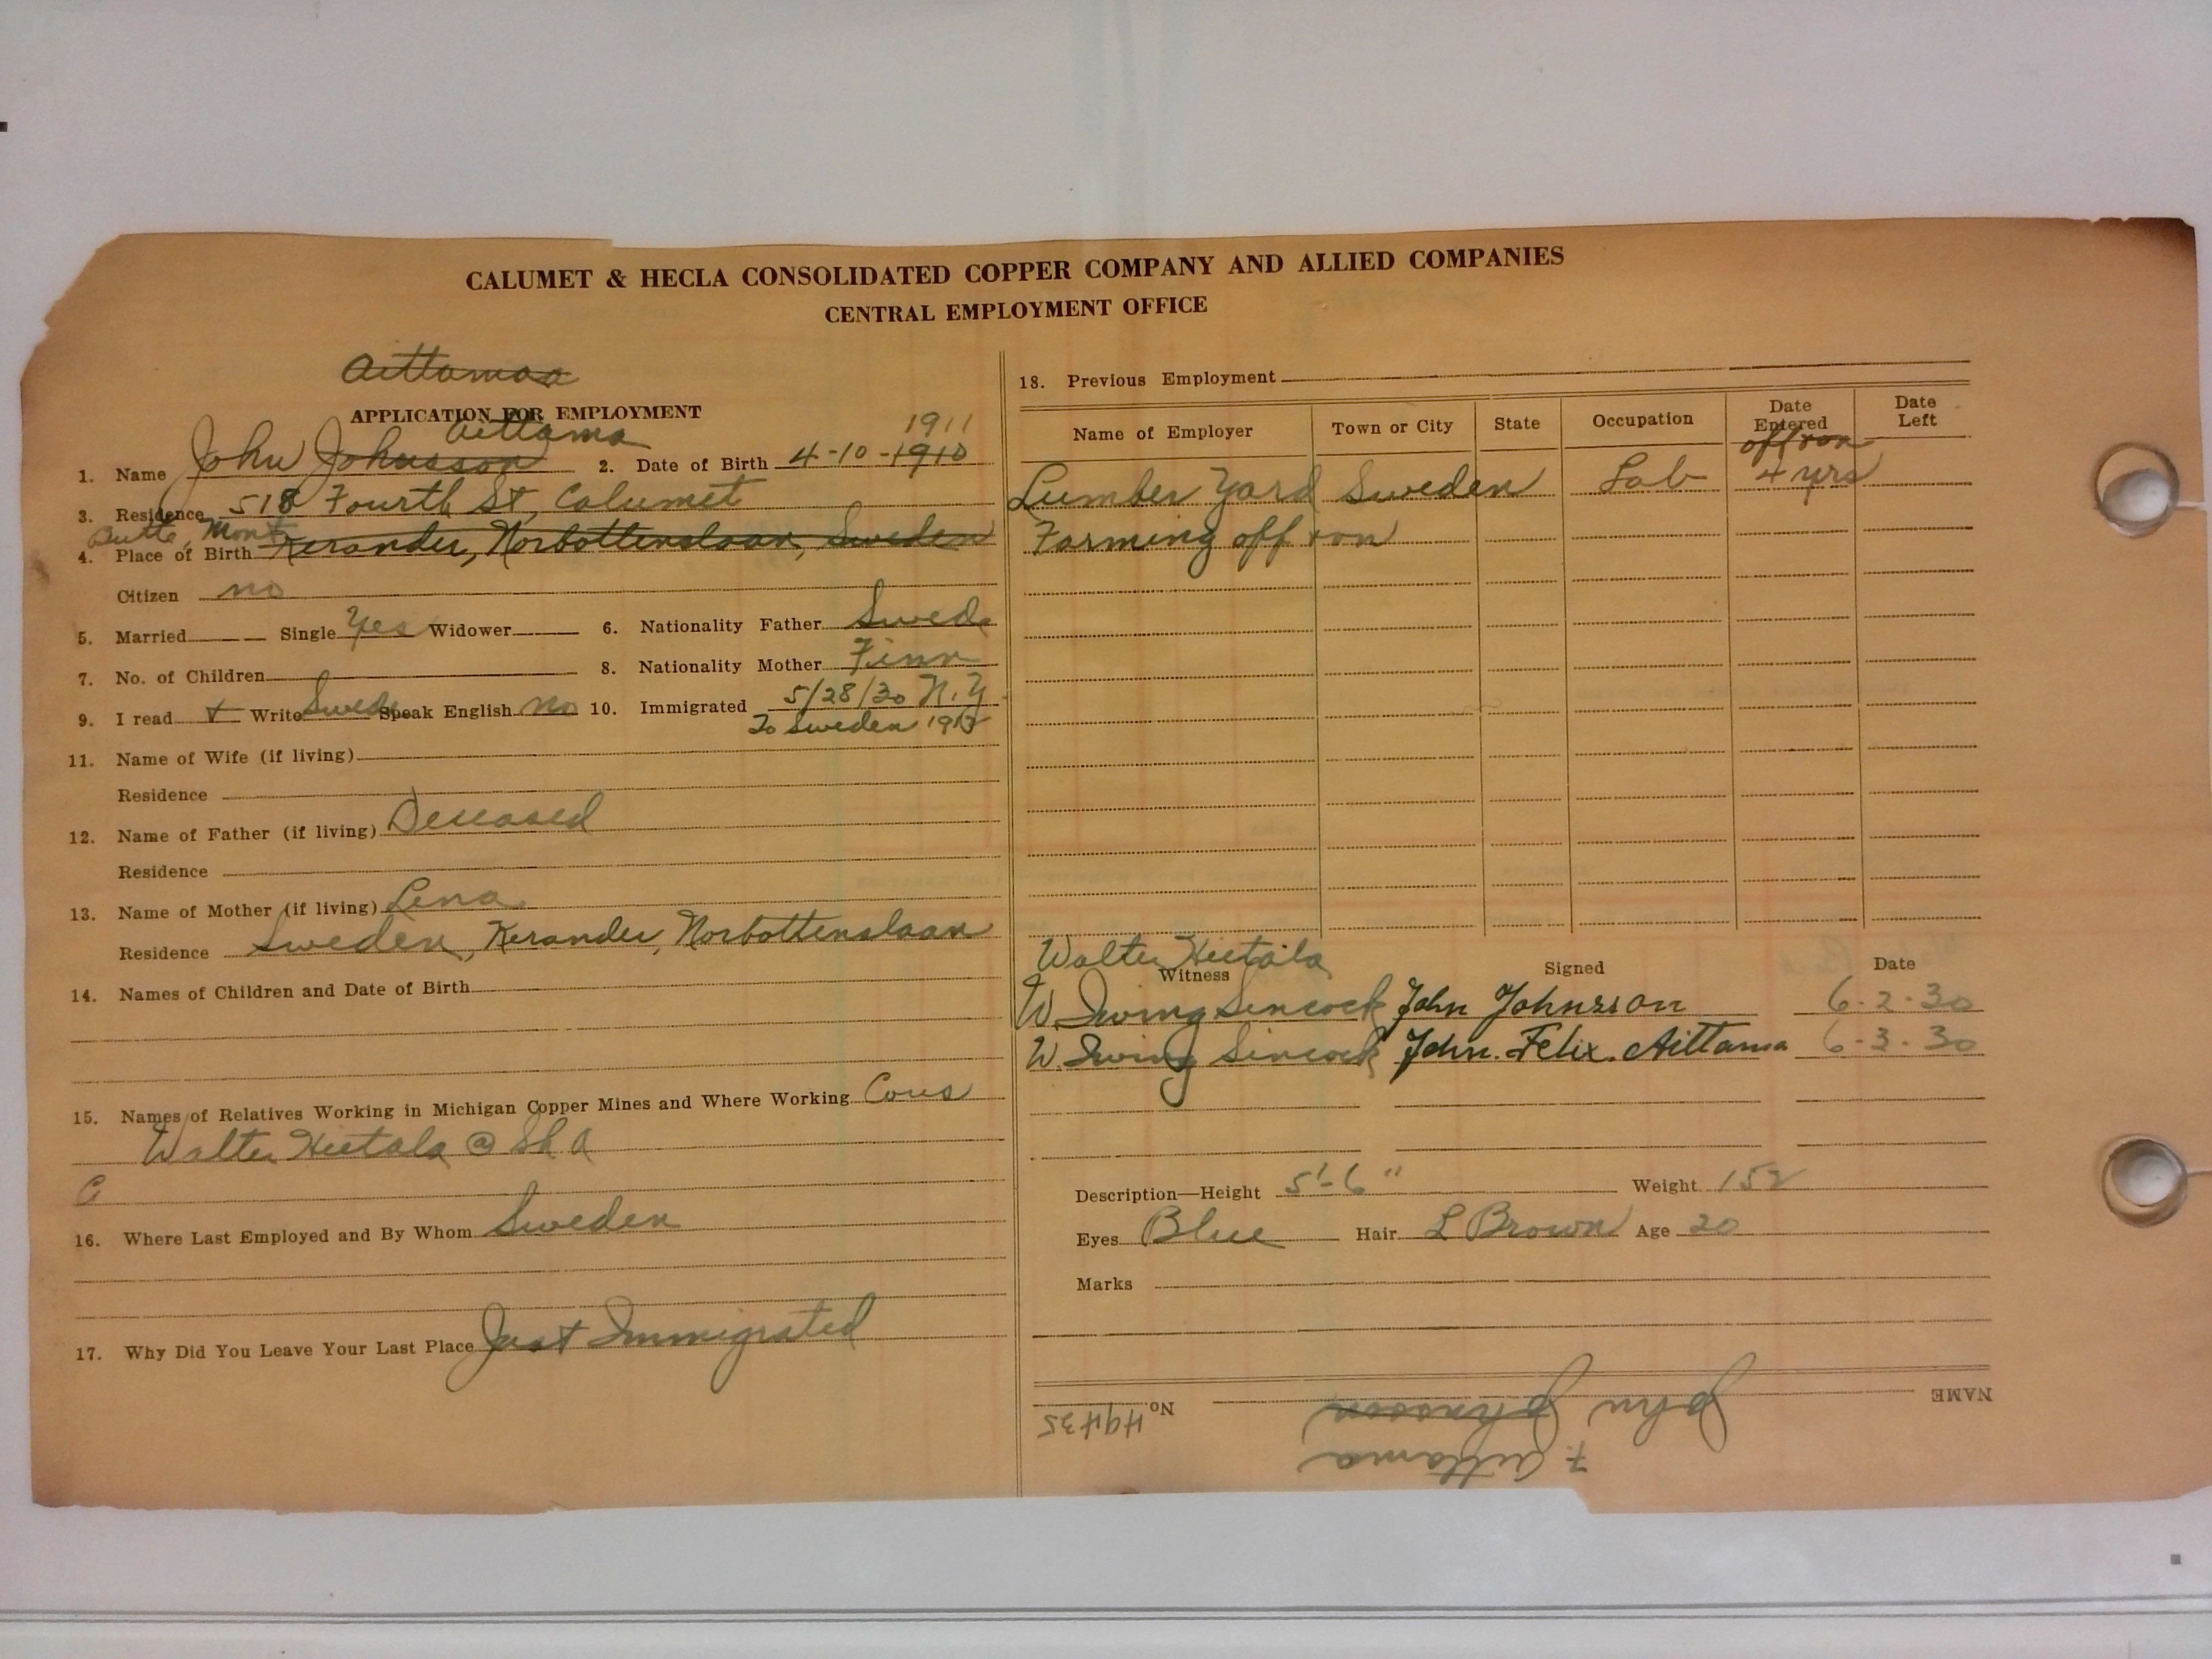 CALUMET & HECLA CONSOLIDATED COPPER COMPANY AND ALLIED COMPANIES
CENTRAL EMPLOYMENT OFFICE
Aittamaa
APPLICATION FOR EMPLOYMENT
Aittama
1911
1. Name John Johnsson 2. Date of Birth 4-10-1910
3. Residence 518 Fourth St, Calumet
Butte, Mont
4. Place of Birth Kerander, Norbottenslaan, Sweden
Citizen no
5. Married Single Yes Widower 6. Nationality Father Swede
7. No. of Children 8. Nationality Mother Finn
9. I read + Write Swede Speak English no 10. Immigrated 5/28/30 N.Y.
To Sweden
11. Name of Wife (if living)
Residence
12. Name of Father (if living) Deceased
Residence
13. Name of Mother (if living) Lena
Residence Sweden, Kerander, Norbottenslaan
14. Names of Children and Date of Birth
15. Names of Relatives Working in Michigan Copper Mines and Where Working Cous
Walter Hietala @ Sh A
C
16. Where Last Employed and By Whom Sweden
17. Why Did You Leave Your Last Place Just Immigrated
18. Previous Employment
Name of Employer Town or City State Occupation Date Entered Date Left
off + on
Lumber Yard Sweden Lab 4 yrs
Farming off + on
Walter Hietala
Witness Signed Date
W. Irving Sincock John Johnsson 6-2-30
W. Irving Sincock John. Felix. Aittama 6-3-30
Description—Height 5'-6" Weight 152
Eyes Blue Hair L Brown Age 20
Marks
NAME John Johnsson No. 49435
F. Aittama